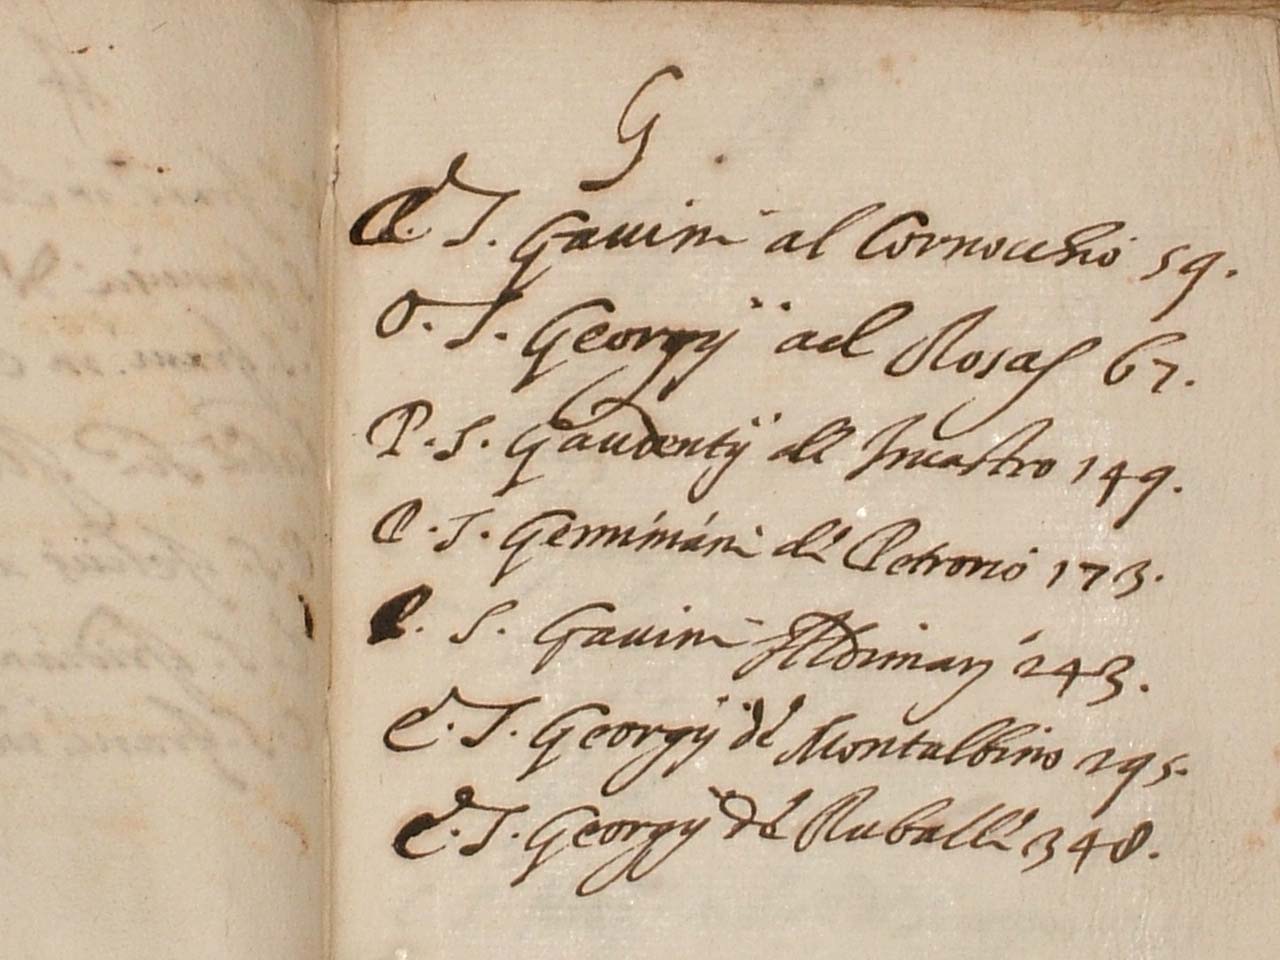 G
P. S. Gauini al Cornocchio 59.
O. S. Georgij ad Rosas 67.
P. S. Gaudentij de 149.
P. S. Geminiani de Petronio 173.
P. S. Gauini Adimarij 243.
P. S. Georgij de Montalbino 295.
P. S. Georgij de Ruballa 348.